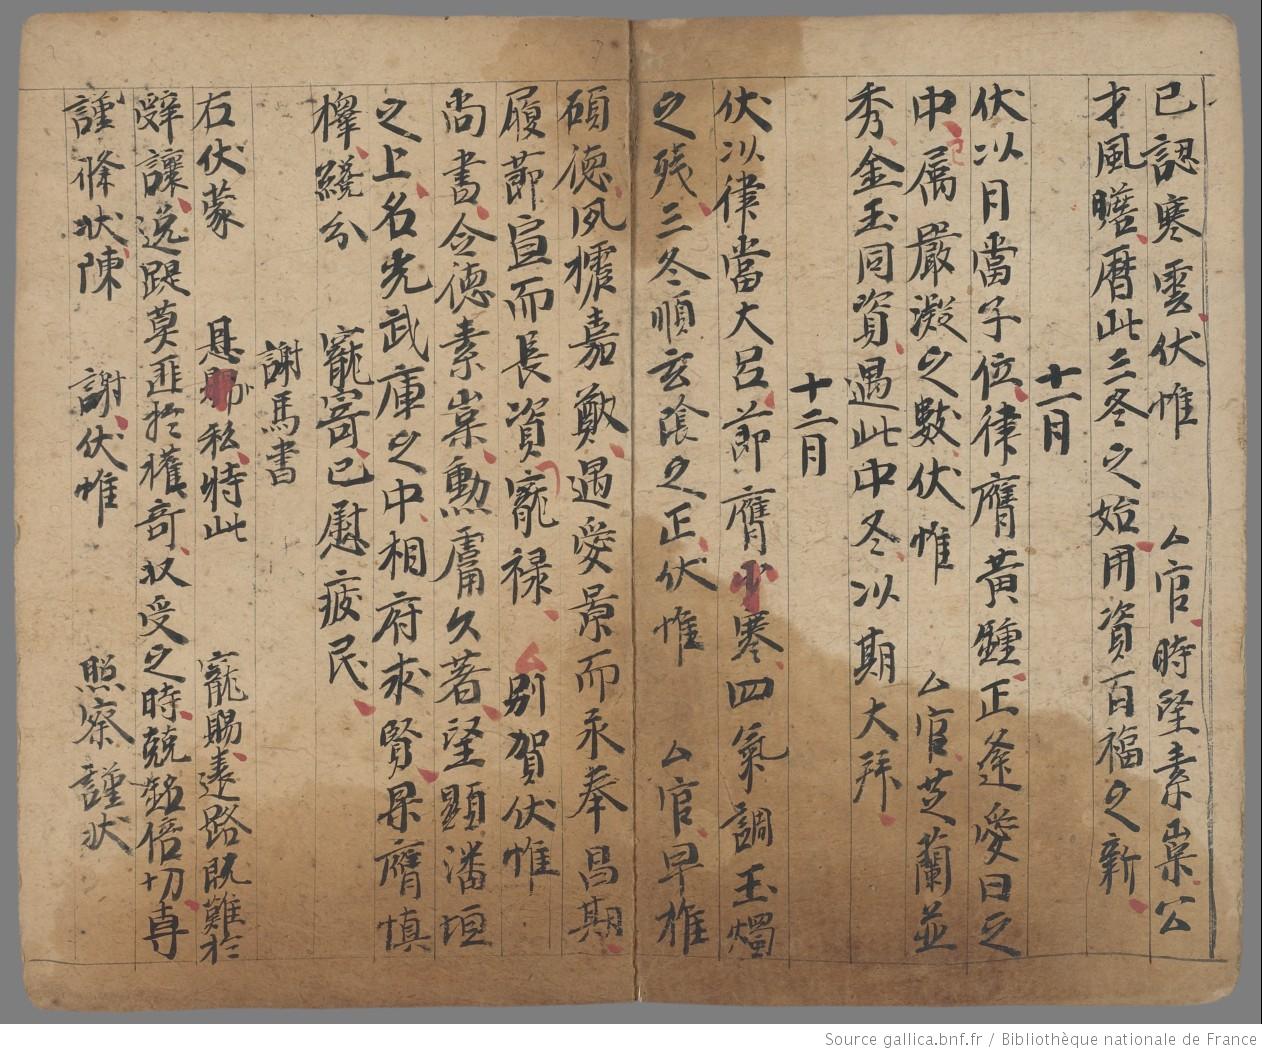 已認寒雲伏惟　厶官時望素高公
才風瞻曆此三冬之始用資百福之新
十一月
伏以月當子位律膺黃鍾正逢愛日之
中属嚴凝之數伏惟　厶官芝蘭並
秀金玉同資遇此中冬以期大拜
十二月
伏以律當大呂節膺小寒四氣調玉燭
之残三冬順玄陰之正伏惟　厶官早推
碩德夙擅嘉猷遇愛景而永奉昌期
履莭宣而長資寵禄厶別賀伏惟
尚書令德素高勳庸久著望顯潘垣
之上名光武庫之中相府求賢果膺慎
擇纔分　寵寄已慰疲民
謝馬書
右伏蒙　恩私特此　寵賜遠路既難於
辝讓逸踶莫匪於權奇収受之時兢銘倍切専
謹修狀陳　謝伏惟　照察謹狀
Source gallica.bnf.fr / Bibliothèque nationale de France